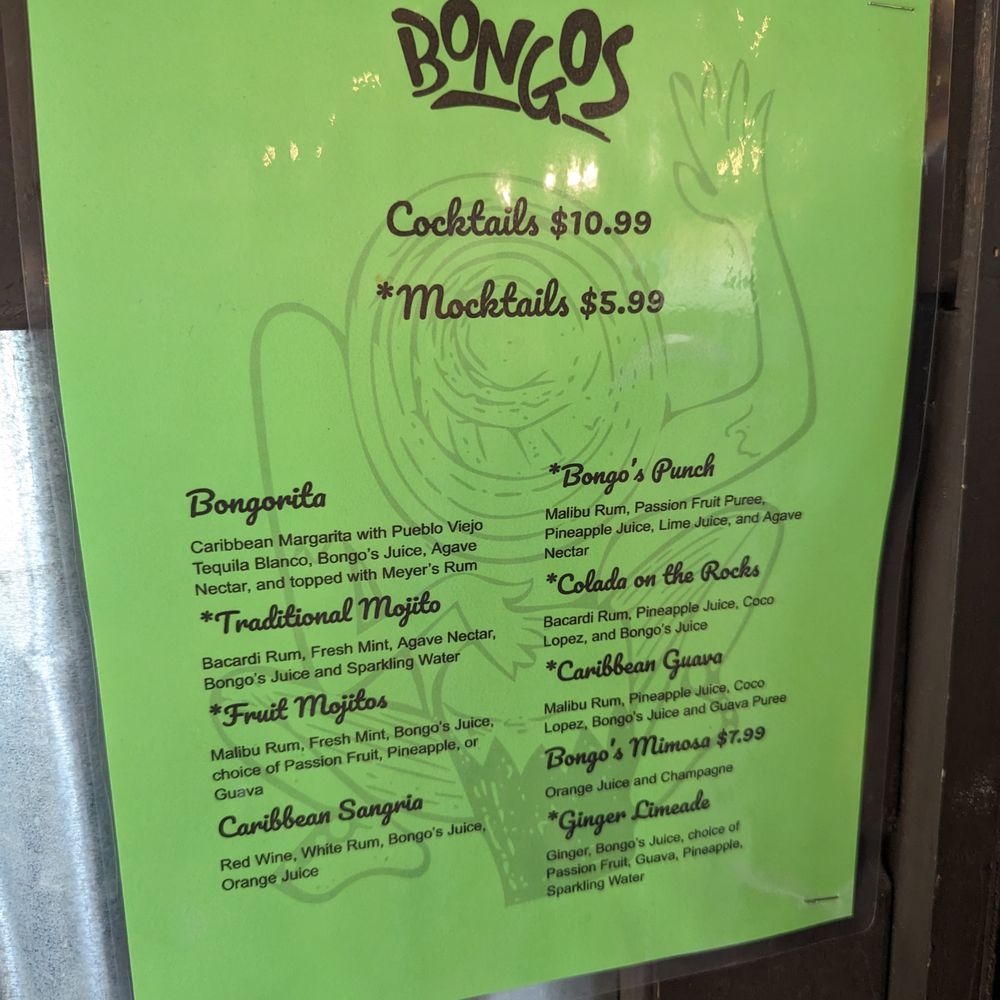 BONGOS
Cocktails $10.99
*Mocktails $5.99
Bongorita
Caribbean Margarita with Pueblo Viejo
Tequila Blanco, Bongo's Juice, Agave
Nectar, and topped with Meyer's Rum
*Traditional Mojito
Bacardi Rum, Fresh Mint, Agave Nectar,
Bongo's Juice and Sparkling Water
*Fruit Mojitos
Malibu Rum, Fresh Mint, Bongo's Juice,
choice of Passion Fruit, Pineapple, or
Guava
Caribbean Sangria
Red Wine, White Rum, Bongo's Juice,
Orange Juice
*Bongo's Punch
Malibu Rum, Passion Fruit Puree,
Pineapple Juice, Lime Juice, and Agave
Nectar
*Colada on the Rocks
Bacardi Rum, Pineapple Juice, Coco
Lopez, and Bongo's Juice
*Caribbean Guava
Malibu Rum, Pineapple Juice, Coco
Lopez, Bongo's Juice and Guava Puree
Bongo's Mimosa $7.99
Orange Juice and Champagne
*Ginger Limeade
Ginger, Bongo's Juice, choice of
Passion Fruit, Guava, Pineapple,
Sparkling Water